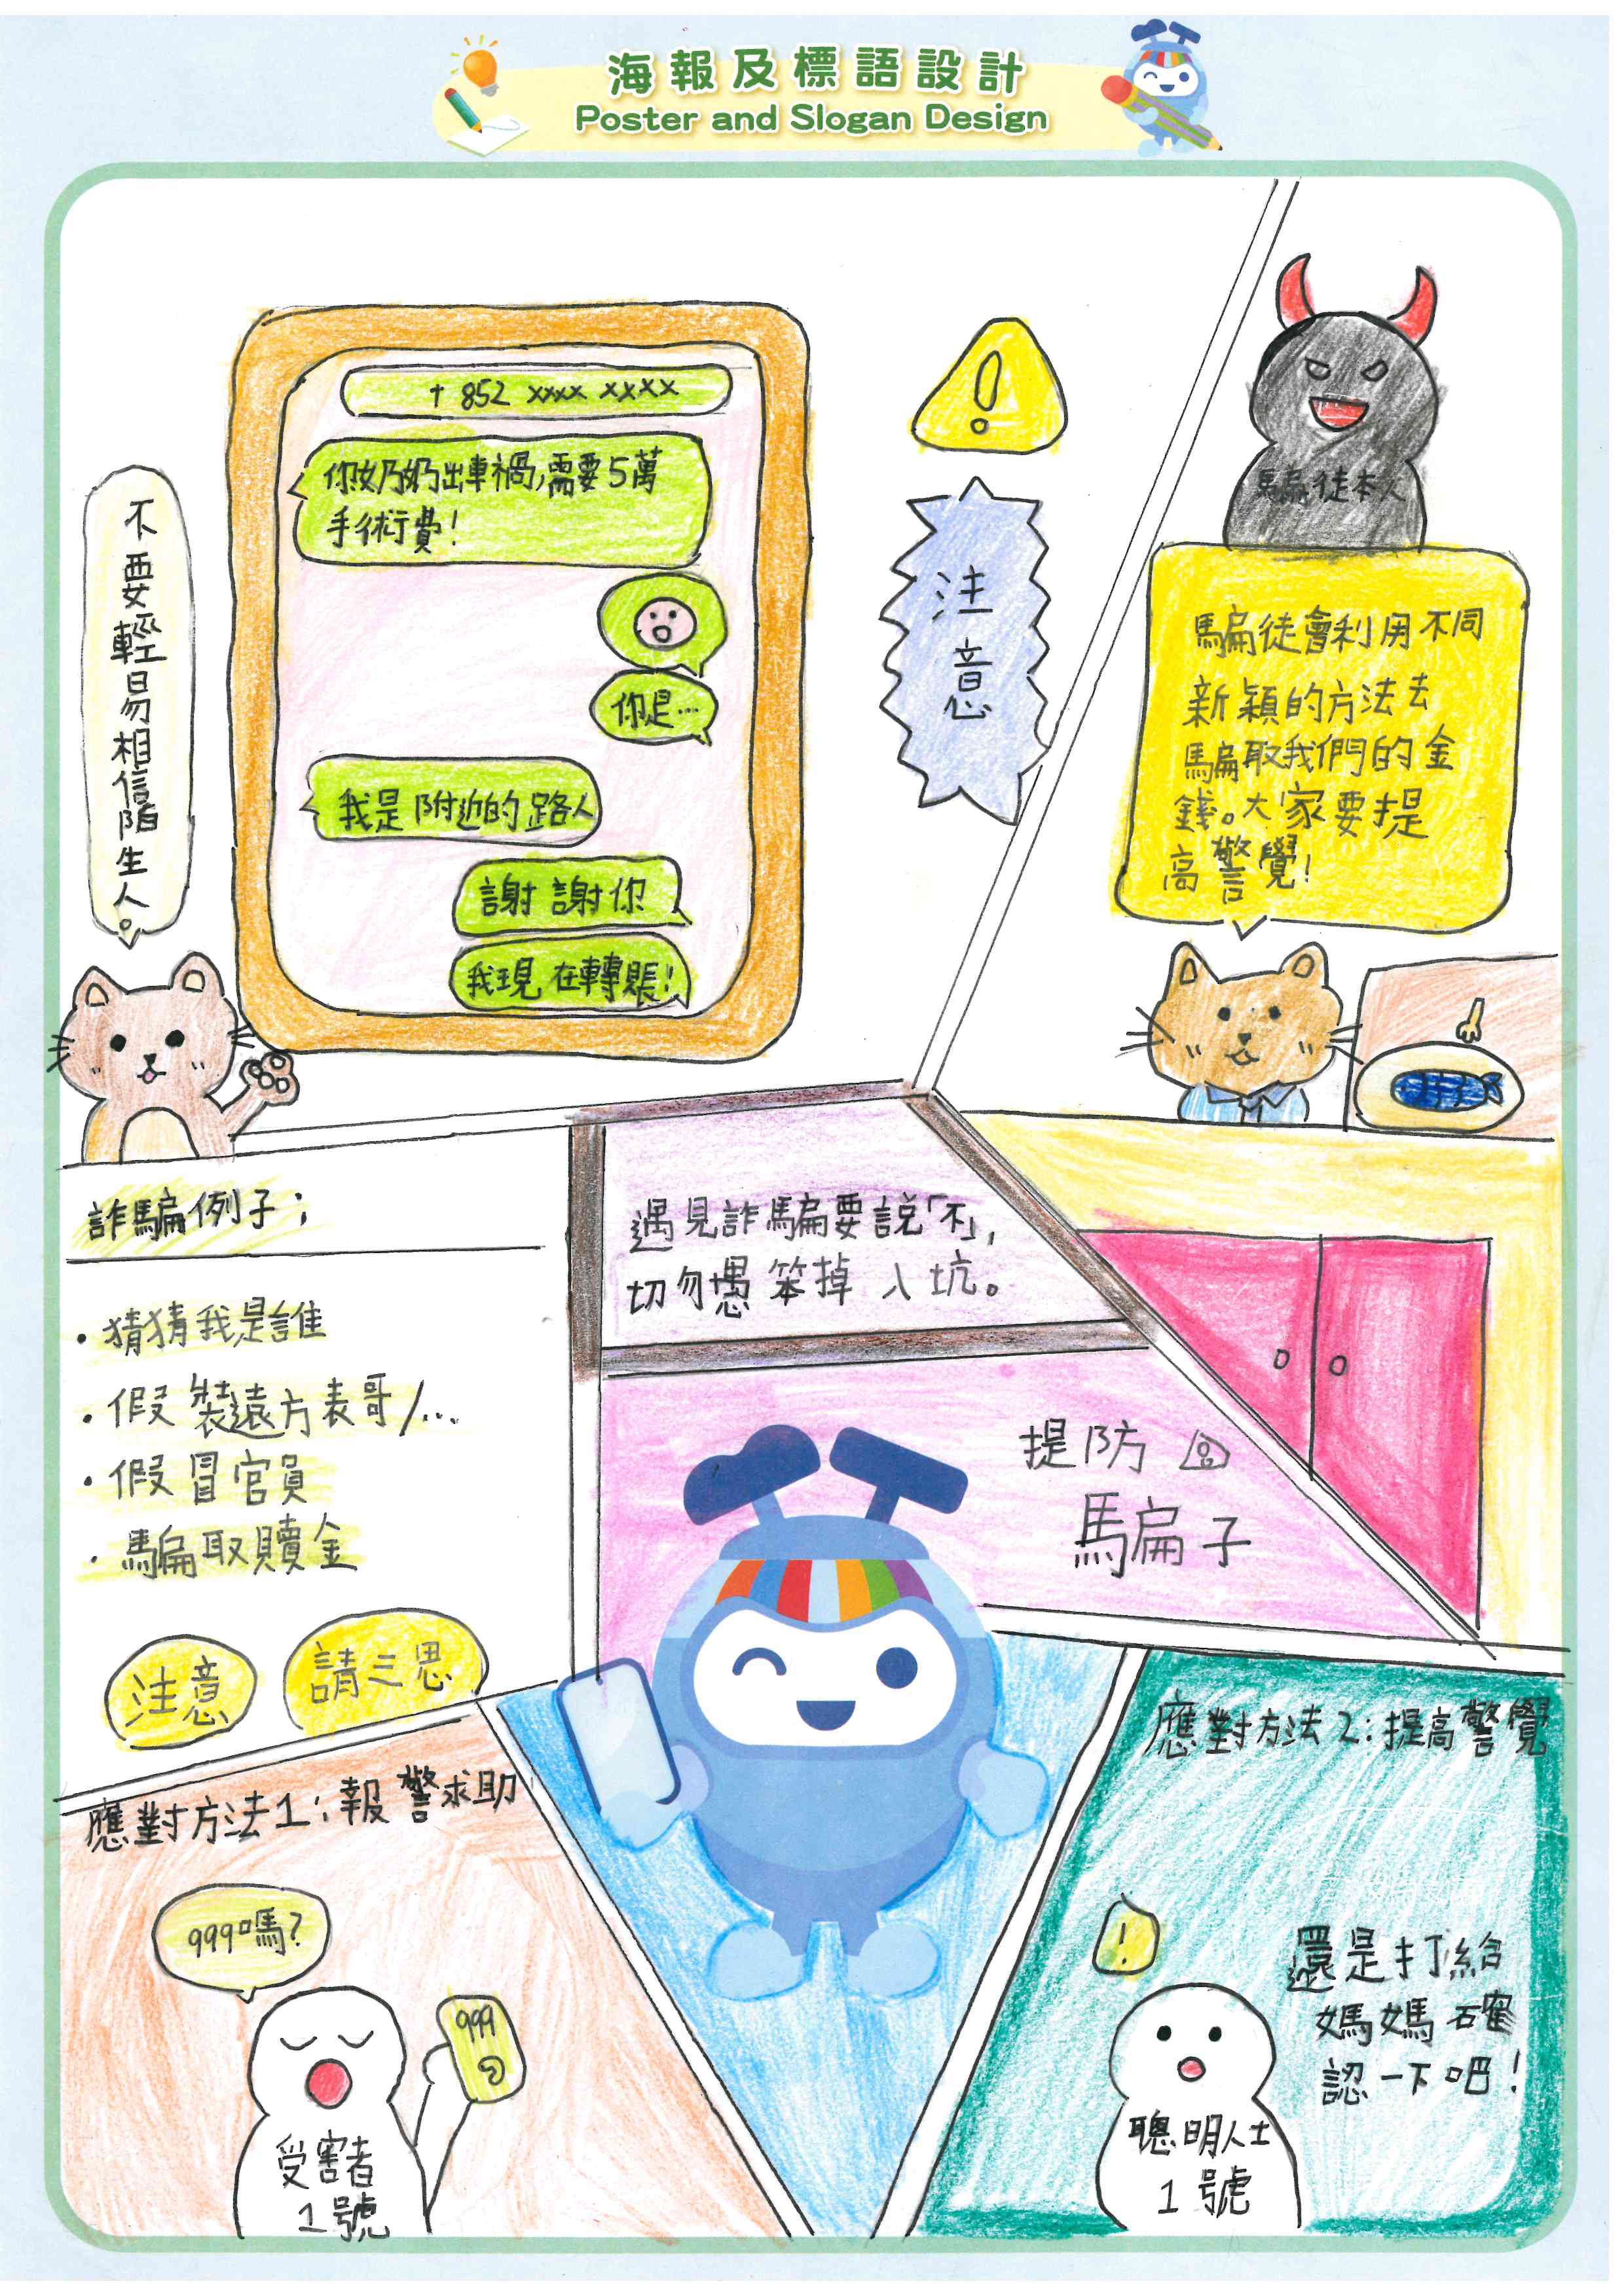 海報及標語設計
Poster and Slogan Design
+852 xxxx xxxx
你奶奶出車禍,需要5萬
手術費!
你是…
我是附近的路人
謝謝你
我現在轉賬!
不要輕易相信陌生人。
注意
騙徒本人
騙徒會利用不同
新穎的方法去
騙取我們的金
錢。大家要提
高警覺!
詐騙例子:
·猜猜我是誰
·假裝遠方表哥/...
·假冒官員
·騙取贖金
注意
請三思
遇見詐騙要說「不」,
切勿愚笨掉入坑。
提防
騙子
應對方法1:報警求助
999嗎?
999
受害者
1號
應對方法2:提高警覺
!
還是打給
媽媽確
認一下吧!
聰明人士
1號